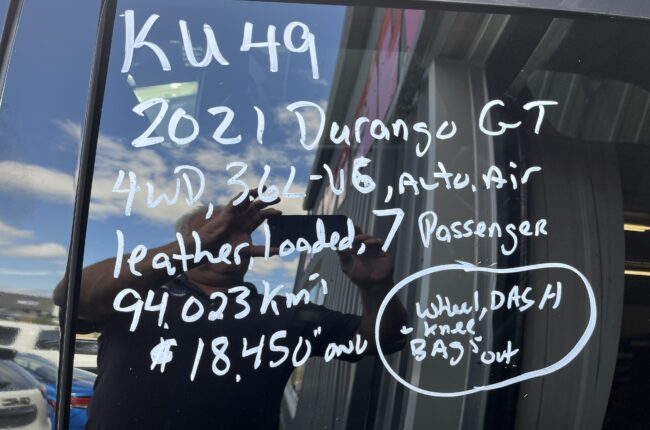 KU49
2021 Durango GT
4WD, 3.6L-V6, Auto. Air
leather Loaded, 7 Passenger
94.023 Kmi
$18.450" ONO
- Wheel, DASH
+ knee
BAgs out